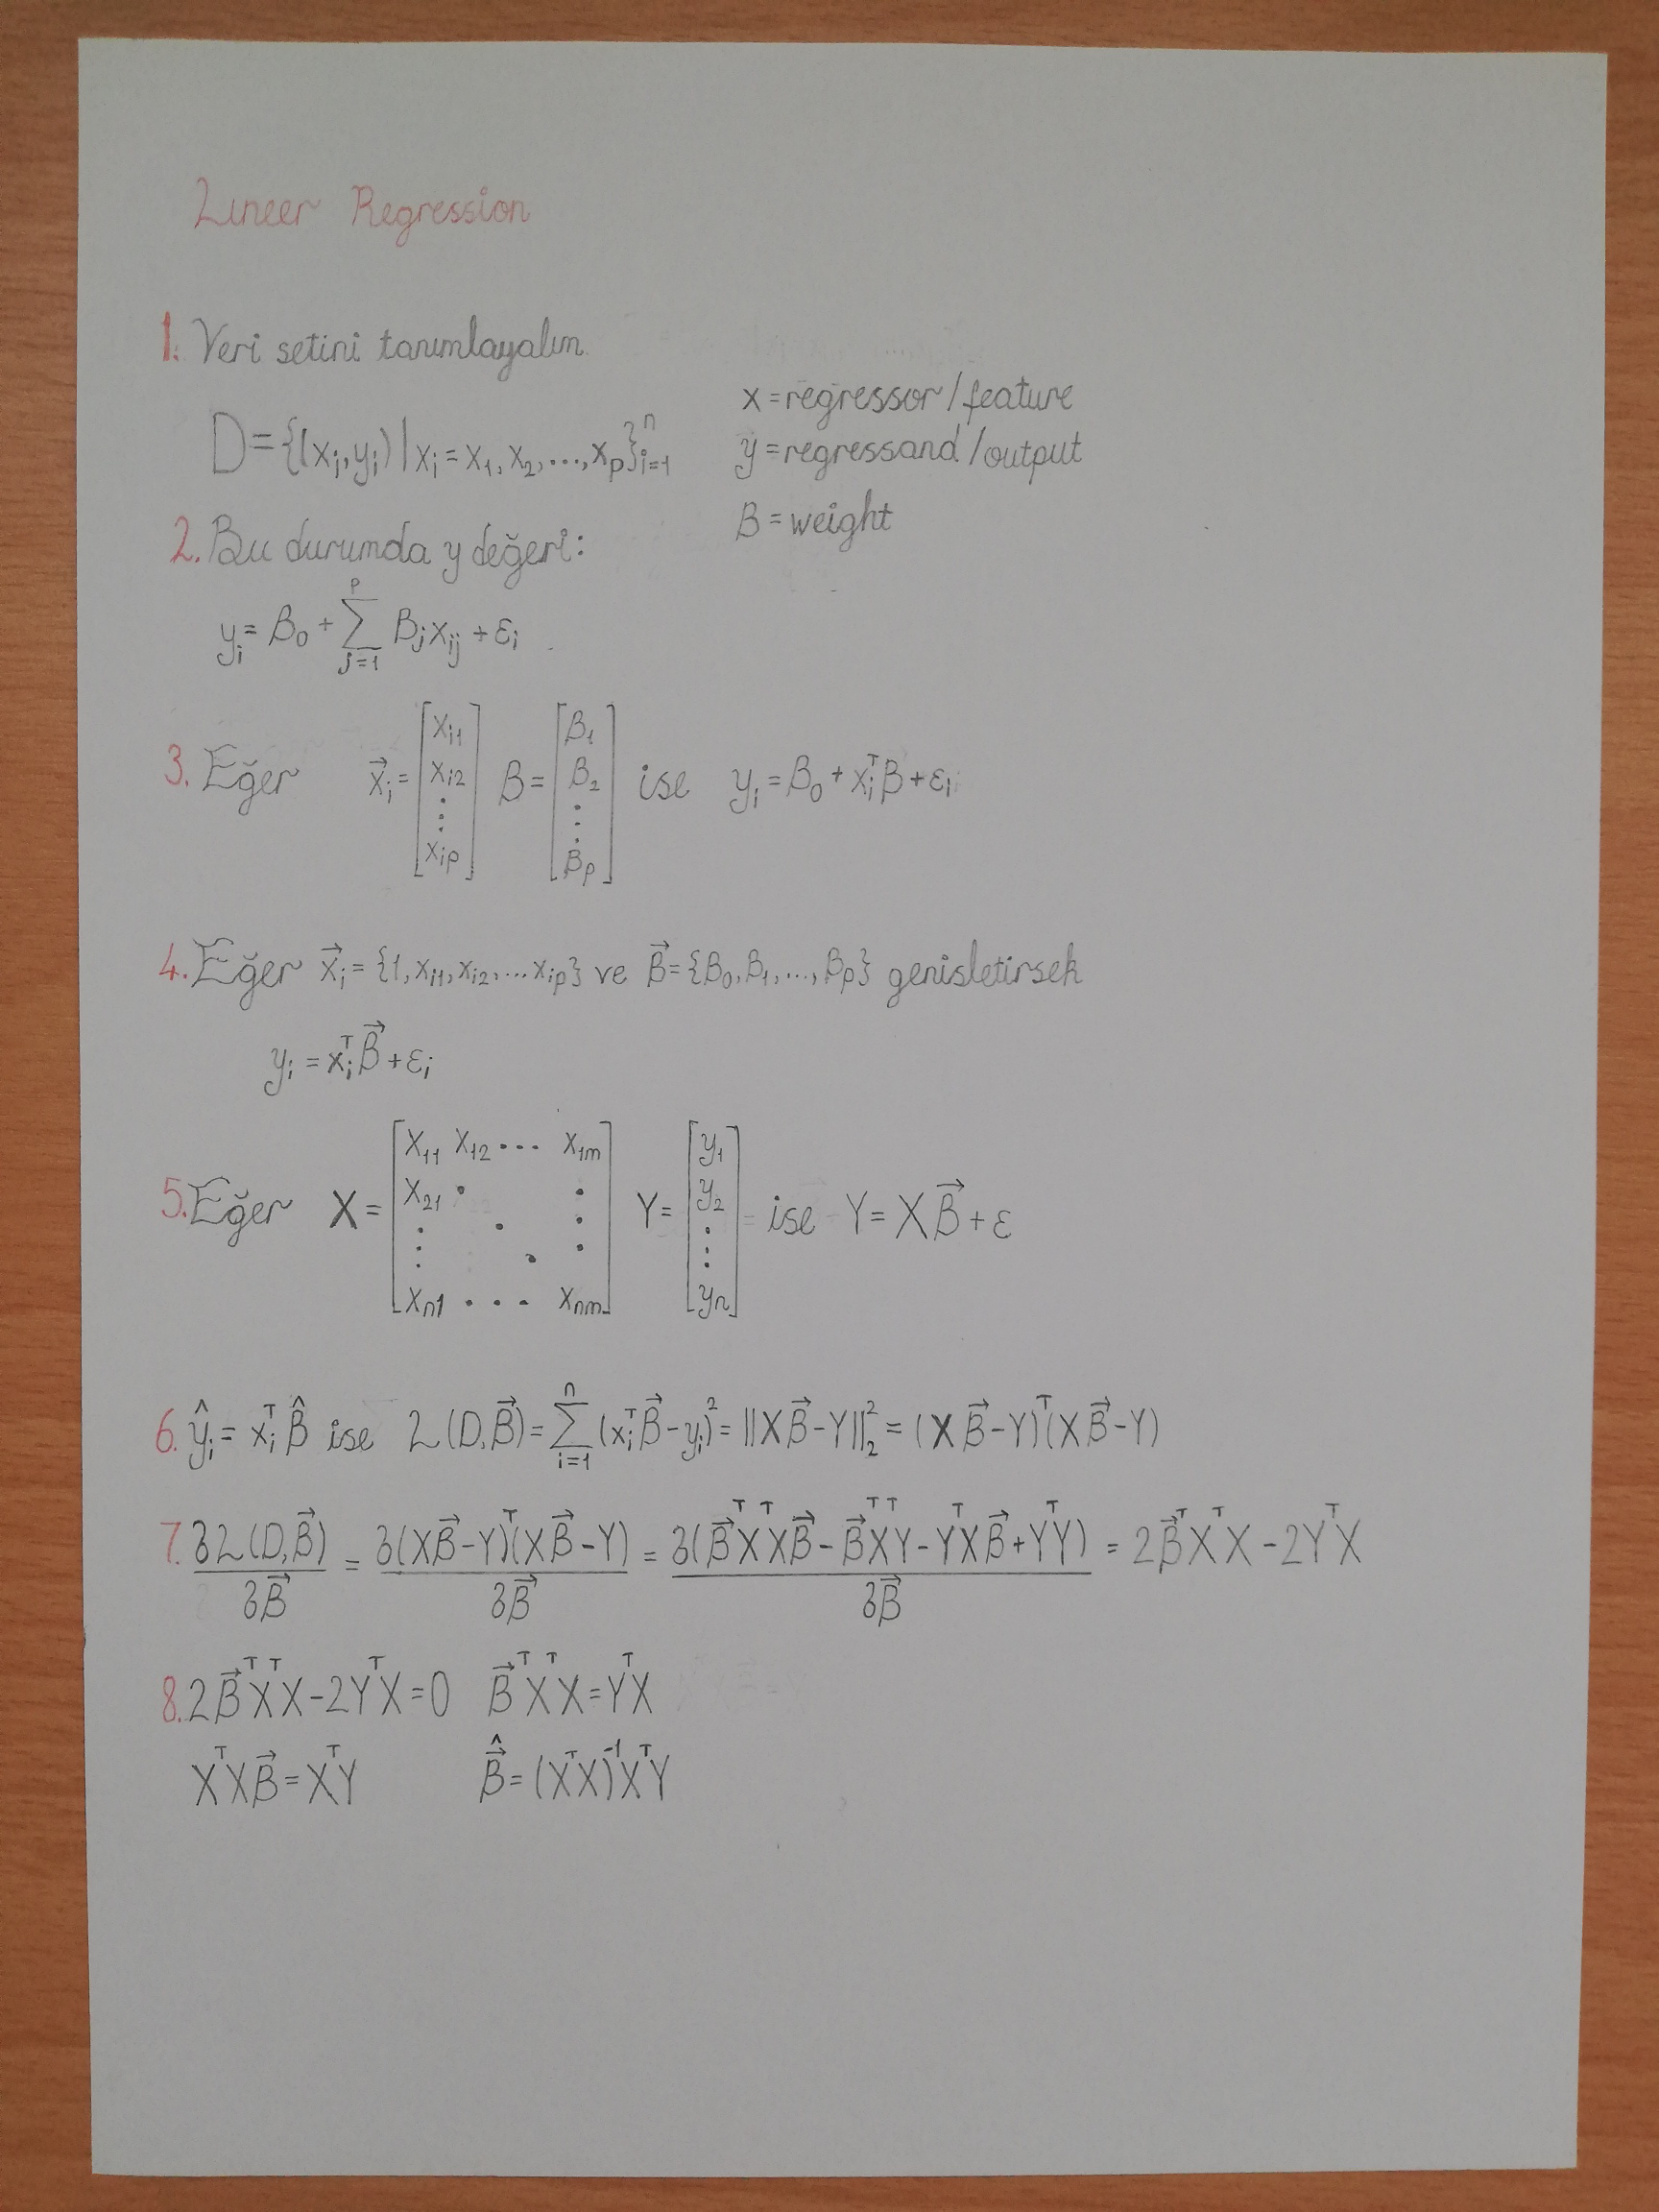 Lineer Regression
1. Veri setini tanımlayalım
D={(xᵢ,yᵢ)|xᵢ=x₁,x₂,...,xₚ}ⁿᵢ₌₁
x=regressor/feature
y=regressand/output
β=weight
2. Bu durumda y değeri:
yᵢ=β₀+∑ᵖⱼ₌₁ βⱼxᵢⱼ+εᵢ
3. Eğer x⃗ᵢ=[xᵢ₁ xᵢ₂ ⋮ xᵢₚ] β=[β₁ β₂ ⋮ βₚ] ise yᵢ=β₀+xᵢᵀβ+εᵢ
4. Eğer x⃗ᵢ={1,xᵢ₁,xᵢ₂,...xᵢₚ} ve β⃗={β₀,β₁,...,βₚ} genisletirsek
yᵢ=xᵢᵀβ⃗+εᵢ
5. Eğer X=[x₁₁ x₁₂ ... x₁ₘ x₂₁ ⋱ ⋮ xₙ₁ ... xₙₘ] Y=[y₁ y₂ ⋮ yₙ] ise Y=Xβ⃗+ε
6. ŷᵢ=xᵢᵀβ̂ ise L(D,β⃗)=∑ⁿᵢ₌₁(xᵢᵀβ⃗-yᵢ)²=||Xβ⃗-Y||₂²=(Xβ⃗-Y)ᵀ(Xβ⃗-Y)
7. ∂L(D,β⃗)/∂β⃗ = ∂(Xβ⃗-Y)ᵀ(Xβ⃗-Y)/∂β⃗ = ∂(β⃗ᵀXᵀXβ⃗-β⃗ᵀXᵀY-YᵀXβ⃗+YᵀY)/∂β⃗ = 2β⃗ᵀXᵀX-2YᵀX
8. 2β⃗ᵀXᵀX-2YᵀX=0 β⃗ᵀXᵀX=YᵀX
XᵀXβ⃗=XᵀY β⃗̂=(XᵀX)⁻¹XᵀY